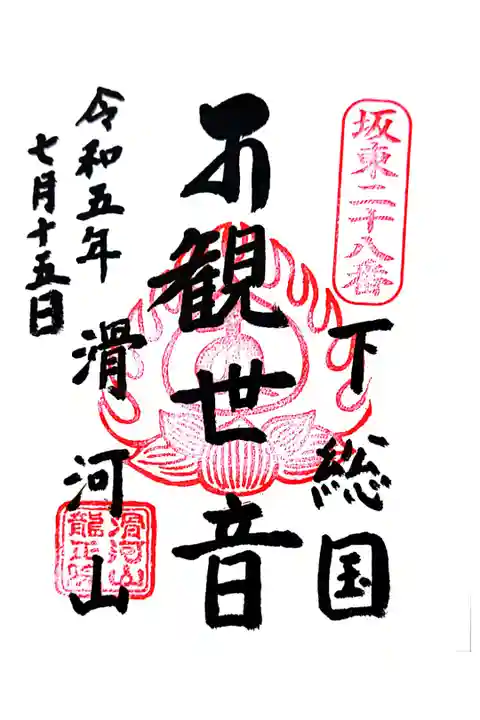 坂東二十八番
下総国
観世音
滑河山
滑河山
龍正院
令和五年
七月十五日